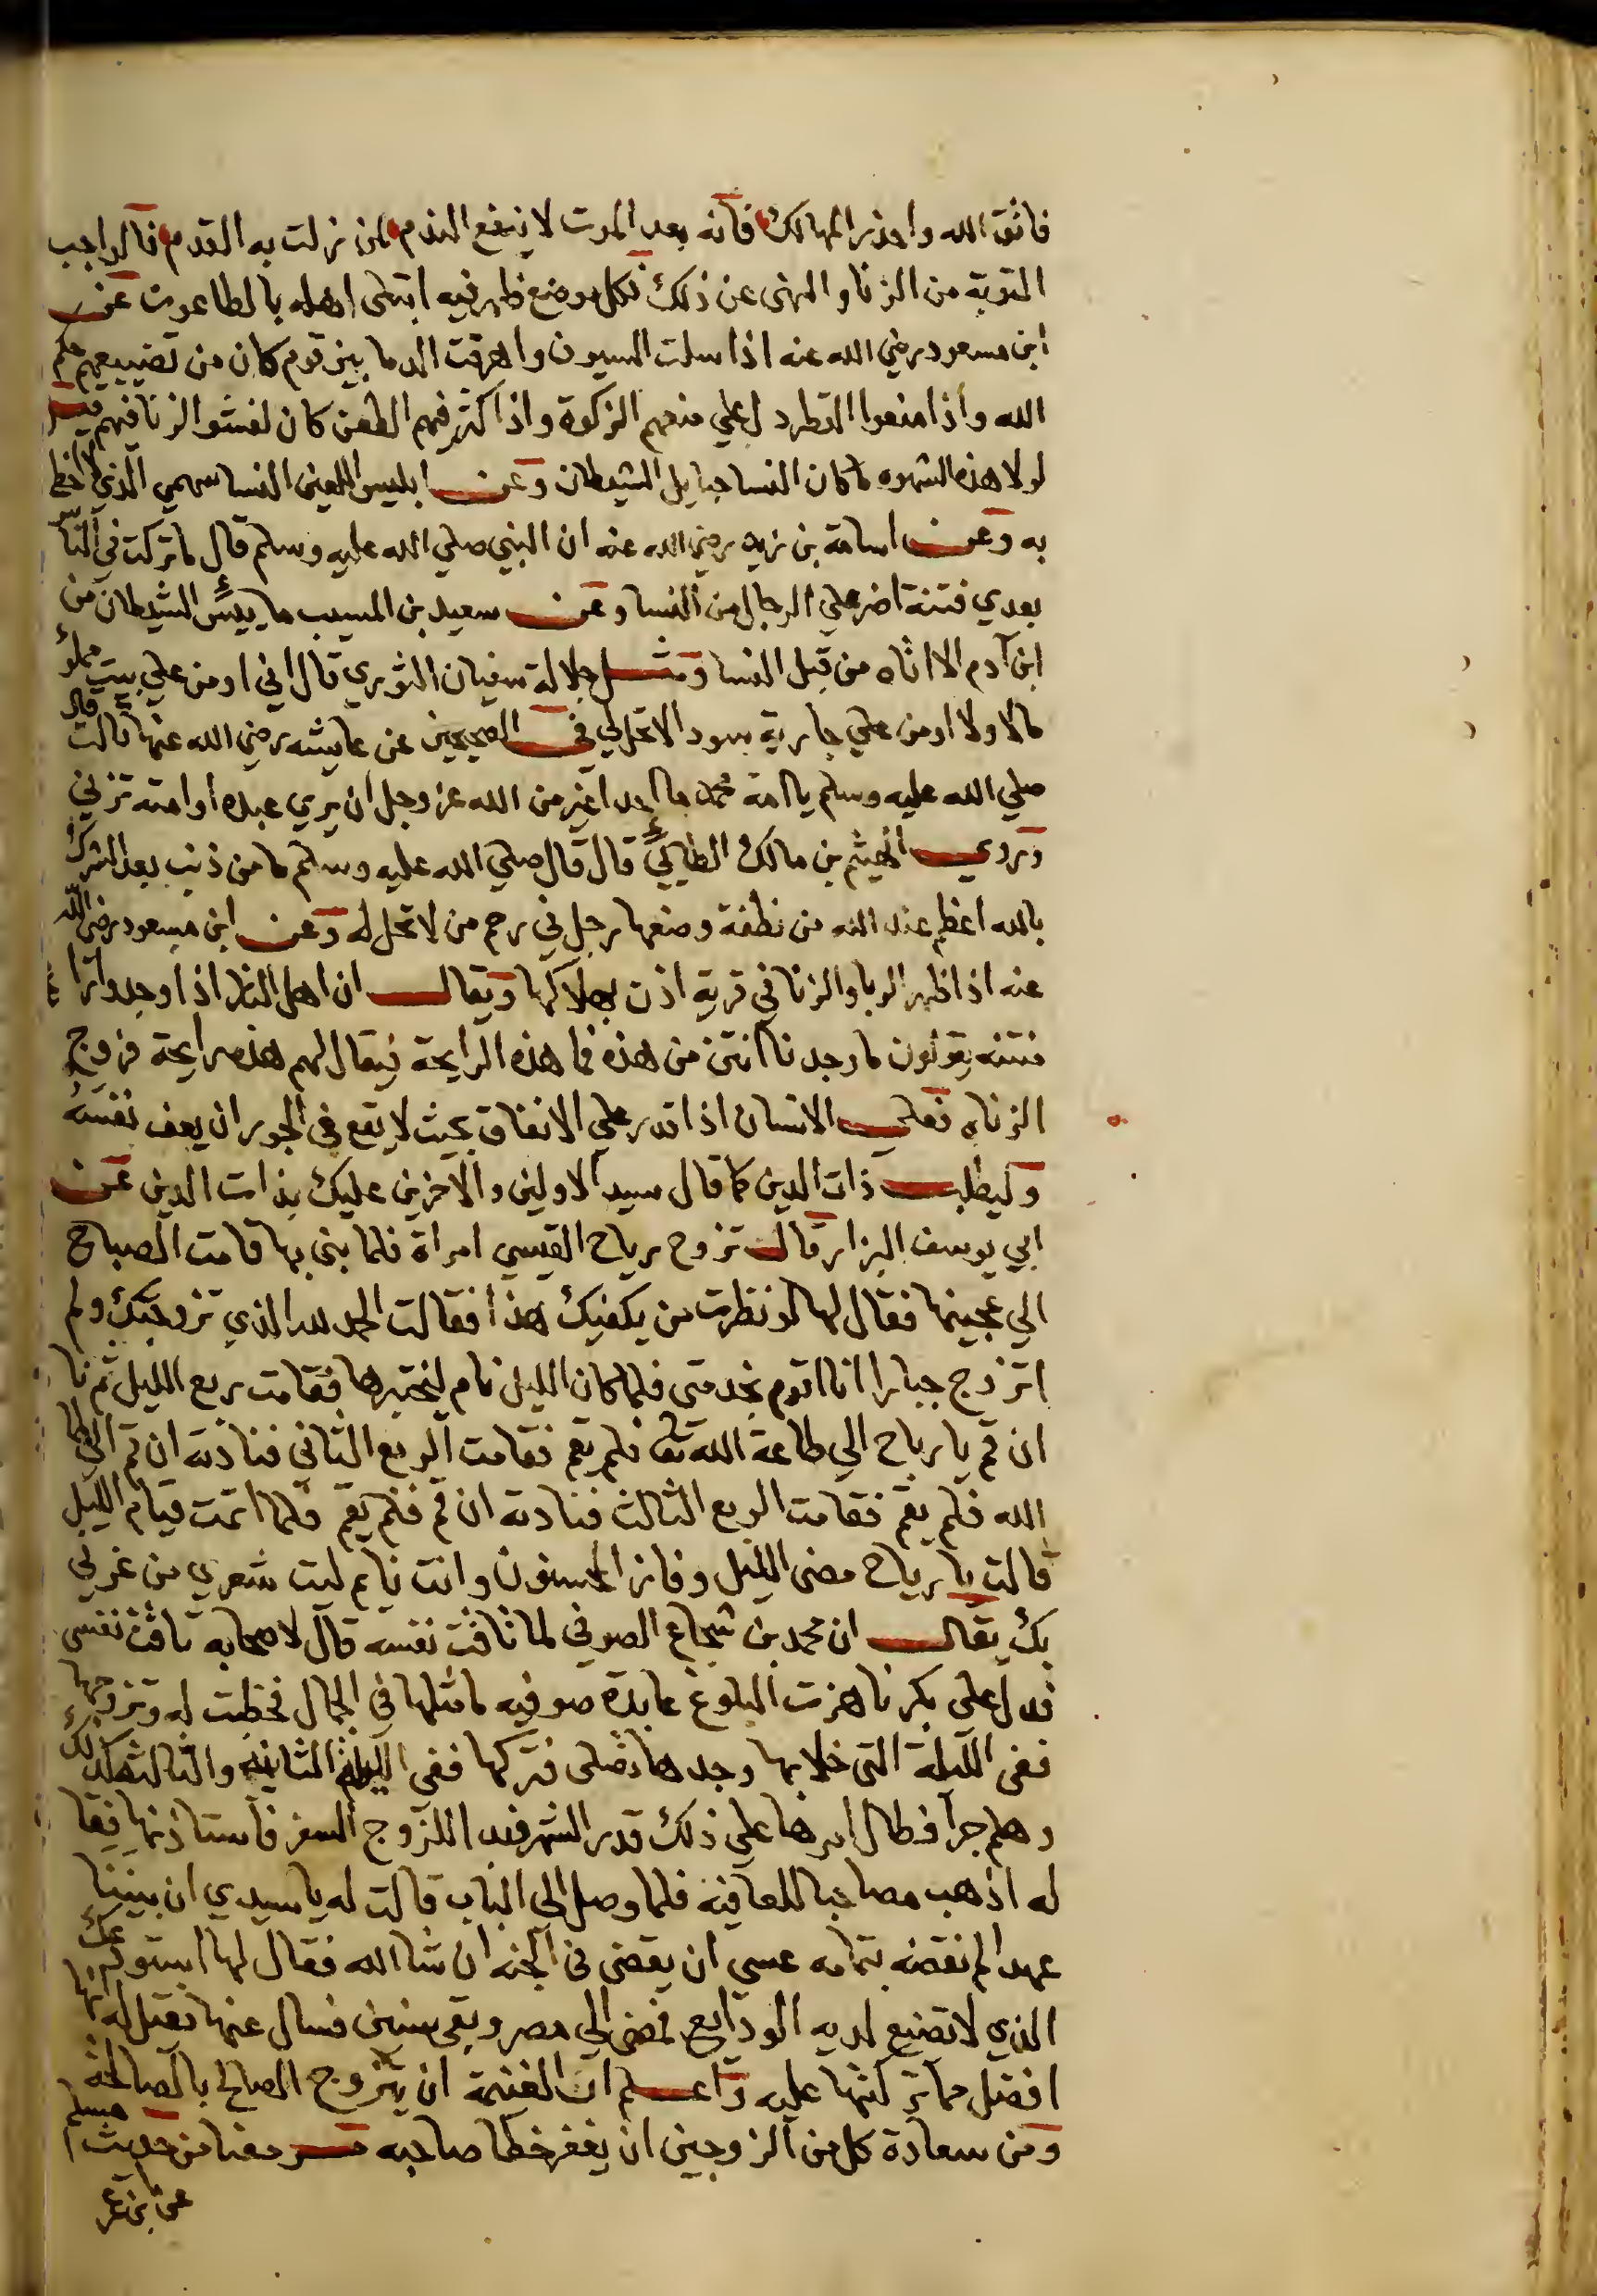 فاتق الله واحذر المهالك فانه بعد الموت لا ينفع الندم لمن نزلت به القدم فالواجب
التوبة من الزنا والنهى عن ذلك فكل موضع ظهر فيه ابتلى اهله بالطاعون عن
ابن مسعود رضي الله عنه اذا سلت السيوف واهرقت الدما بين قوم كان من تضييعهم حكم
الله واذا منعوا القطر دل على منعهم الزكوة واذا كثر فيهم الطعن كان لفشو الزنا فيهم
لولا هذه الشهوه ما كان النسا حبايل الشيطان وعن ابليس اللعين النسا سهمي الذي لا اخطى
به وعن اسامة بن زيد رضي الله عنه ان النبي صلي الله عليه وسلم قال ما تركت في الناس
بعدي فتنة اضر علي الرجال من النسا وعن سعيد بن المسيب ما ييئس الشيطان من
ابن آدم الا اتاه من قبل النسا ومثل جلالة سفيان الثوري قال اني اومن علي بيت مملؤ
مالا ولا اومن علي جارية سودا لا تحل لي في الصحيحين عن عايشه رضي الله عنها قالت قال
صلي الله عليه وسلم يا امة محمد ما احد اغير من الله عز وجل ان يري عبده او امته تزني
وروي الهيثم بن مالك الطائي قال قال صلي الله عليه وسلم ما من ذنب بعد الشرك
بالله اعظم عند الله من نطفة وضعها رجل في رحم من لا تحل له وعن ابن مسعود رضي الله
عنه اذا ظهر الربا والزنا في قرية اذن بهلاكها ويقال ان اهل النار اذا وجدوا
منتنه يقولون ما وجدنا انتن من هذه فما هذه الرايحة فيقال لهم هذه رايحة فروج
الزناه فعلى الانسان اذا قدر علي الانفاق بحيث لا يقع في الجور ان يعف نفسه
وليطلب ذات الدين كما قال سيد الاولين والآخرين عليك بذات الدين عن
ابي يوسف البزار قال تزوج رياح القيسي امراة فلما بنى بها قامت الصباح
الي عجينها فقال لها لو نظرت من يكفيك هذا فقالت الحمد لله الذي تزوجتك ولم
اتزوج جبارا انا اقوم بخدمتي فلما كان الليل نام ليختبرها فقامت ربع الليل ثم نا
ان قم يا رباح الي طاعة الله تعا فلم يقم فقامت الربع الثاني فنادته ان قم الي
الله فلم يقم فقامت الربع الثالث فنادته ان قم فلم يقم فلما اتمت قيام الليل
قالت يا رياح مضى الليل وفاز المحسنون وانت نايم ليت شعري من غرني
بك يقال ان محمد بن شجاع الصوفي لما تاقت نفسه قال لاصحابه تاقت نفسي
فدل على بكر ناهزت البلوغ عابدة صوفيه ما مثلها في الجمال فخطبت له وتزوجها
ففى الليلة التى خلا بها وجدها تصلى فتركها ففى الليلة الثانيه والثالثه كذلك
وهلم جرا فطال امرها علي ذلك قدر الشهر فبدا للزوج السفر فاستاذنها فقا
له اذهب مصاحبا للعافية فلما وصل الى الباب قالت له يا سيدي ان بيننا
عهدا لم نقضه بتمامه عسي ان يقضى في الجنه ان شا الله فقال لها استودعتك
الذي لا تضيع لديه الودايع فمضى الي مصر وبقى سنين فسال عنها فقيل له انها
افضل مما تركتها عليه واعلم ان الغنيمة ان يتزوج الصالح بالصالحة
ومن سعادة كل من الزوجين ان يغفر خطا صاحبه من حديث مسلم
عن ابن عمر